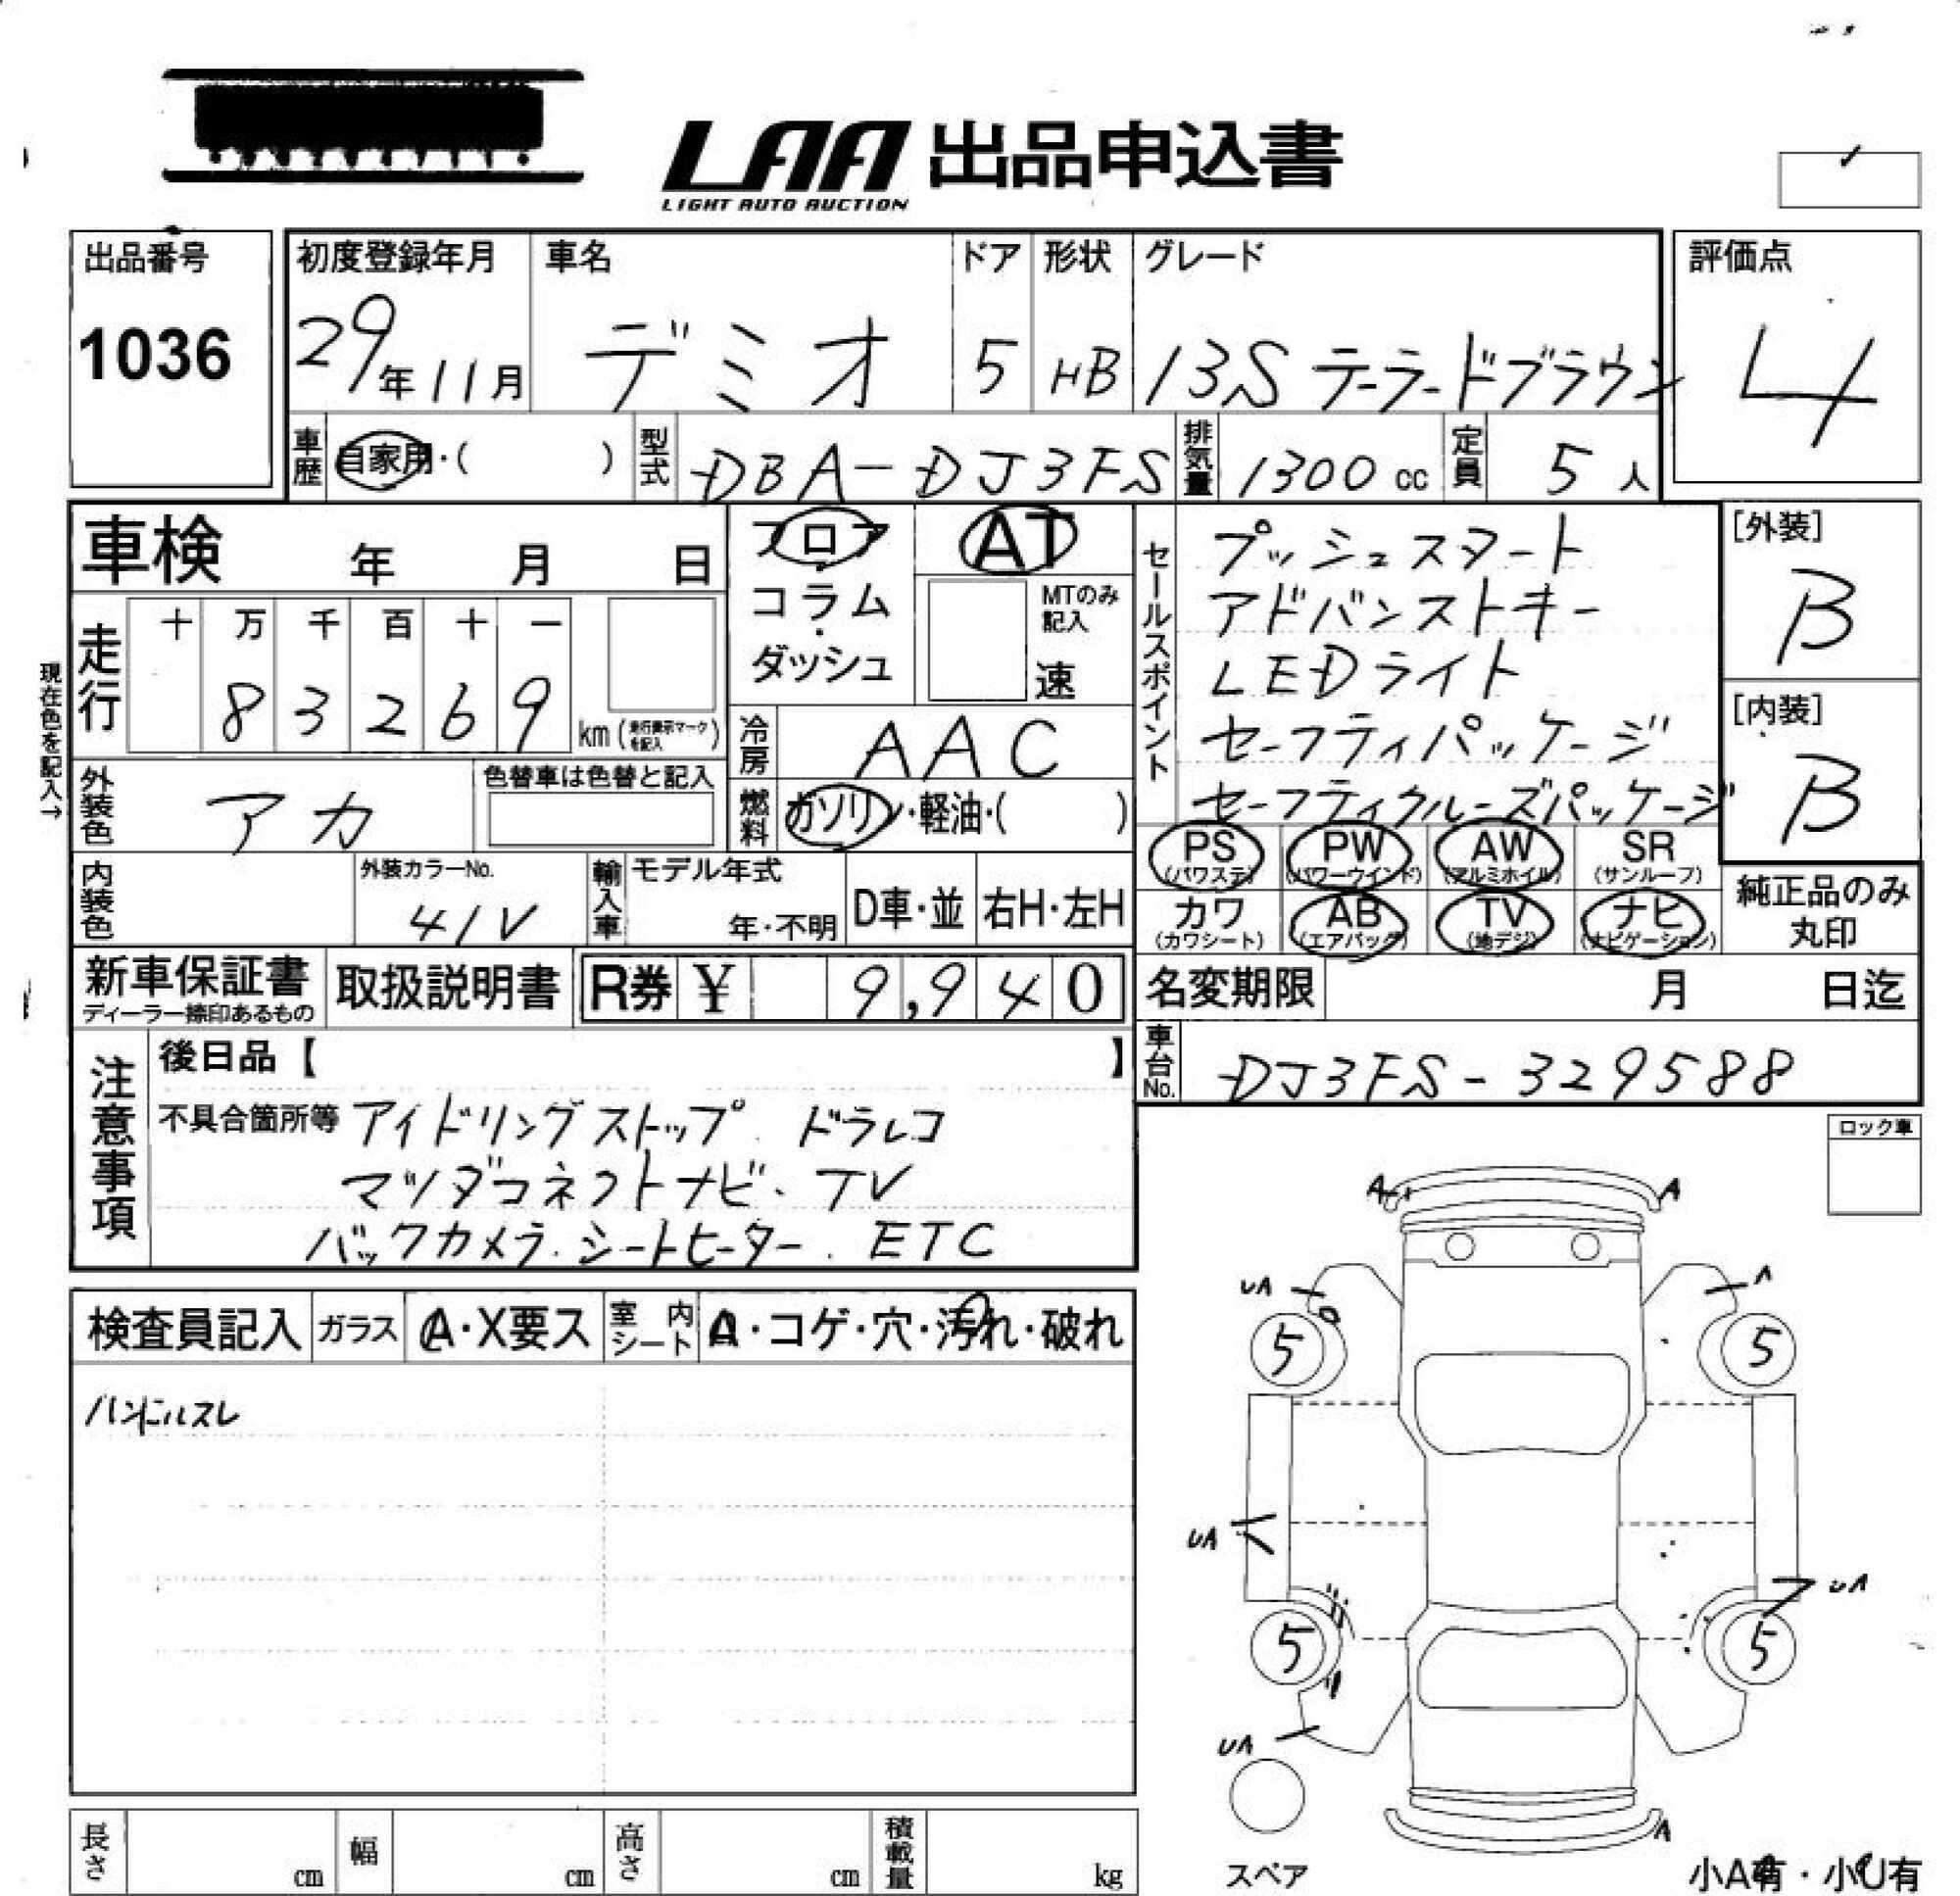 LAA 出品申込書
LIGHT AUTO AUCTION
出品番号
1036
初度登録年月
29年11月
車名
デミオ
ドア
5
形状
HB
グレード
13S テーラードブラウン
評価点
4
車歴
自家用・( )
型式
DBA-DJ3FS
排気量
1300 cc
定員
5人
車検 年 月 日
フロア
コラム
ダッシュ
AT
MTのみ
記入
速
セールスポイント
プッシュスタート
アドバンストキー
LEDライト
セーフティパッケージ
セーフティクルーズパッケージ
[外装]
B
[内装]
B
現在色を記入→
走行
十 万 千 百 十 一
8 3 2 6 9
km (走行表示マークを記入)
冷房
AAC
外装色
アカ
色替車は色替と記入
燃料
ガソリン・軽油・( )
PS (パワステ)
PW (パワーウインド)
AW (アルミホイル)
SR (サンルーフ)
内装色
外装カラーNo.
41V
輸入車
モデル年式
年・不明
D車・並
右H・左H
カワ (カワシート)
AB (エアバッグ)
TV (地デジ)
ナビ (ナビゲーション)
純正品のみ
丸印
新車保証書
ディーラー捺印あるもの
取扱説明書
R券 ¥ 9,940
名変期限 月 日迄
車台No.
DJ3FS-329588
注意事項
後日品【 】
不具合箇所等 アイドリングストップ. ドラレコ
マツダコネクトナビ、TV
バックカメラ.シートヒーター. ETC
ロック車
検査員記入
ガラス
A・X要ス
室内シート
A・コゲ・穴・汚れ・破れ
ハンドルスレ
A A
UA A
5 5
UA
UA
5 5
UA
A
スペア
小A有・小U有
長さ cm
幅 cm
高さ cm
積載量 kg